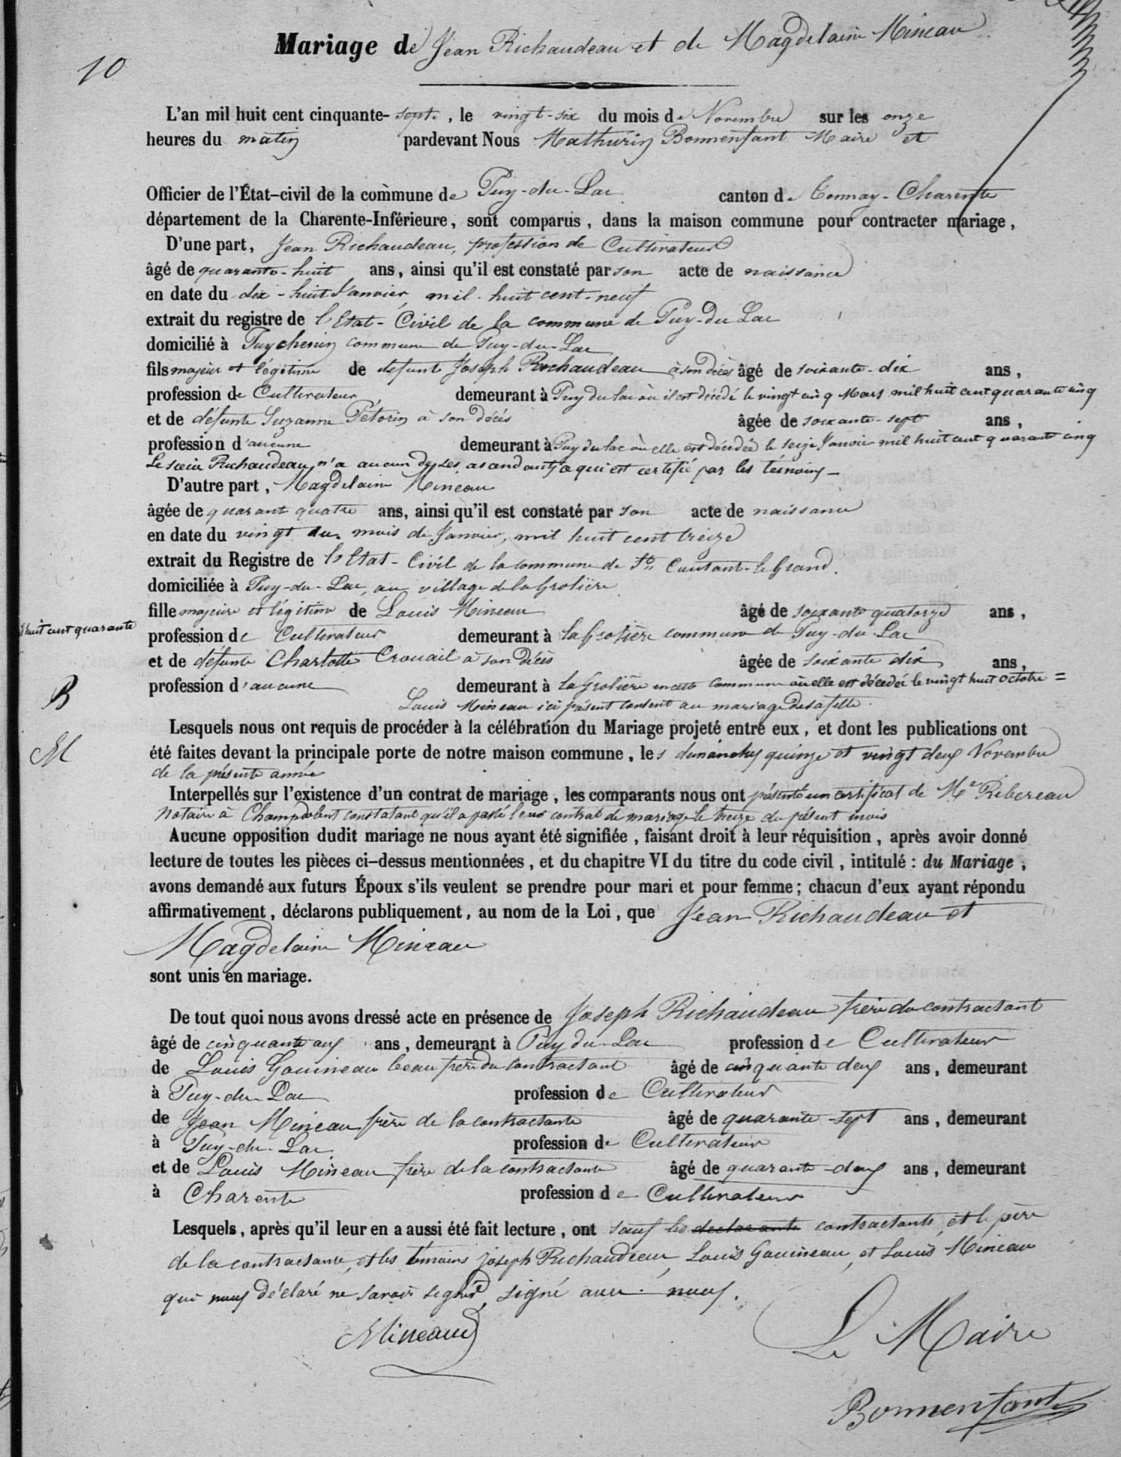 Mariage de Jean Richaudeau et de Magdelaine Mineau
10
L'an mil huit cent cinquante-sept, le vingt-six du mois de Novembre sur les onze
heures du matin pardevant Nous Mathurin Bonnenfant Maire et
Officier de l'État-civil de la commune de Puy-du-Lac canton de Tonnay-Charente
département de la Charente-Inférieure, sont comparus, dans la maison commune pour contracter mariage,
D'une part, Jean Richaudeau, profession de Cultivateur
âgé de quarante-huit ans, ainsi qu'il est constaté par son acte de naissance
en date du dix-huit Janvier mil-huit cent-neuf
extrait du registre de l'Etat-Civil de la commune de Puy-du Lac
domicilié à Puychenin commune de Puy-du-Lac
fils majeur et légitime de défunt Joseph Richaudeau à son décès âgé de soixante-dix ans,
profession de Cultivateur demeurant à Puy du lac où il est décédé le vingt cinq Mars mil huit cent quarante cinq
et de défunte Suzanne Petorin à son décès âgée de soixante-sept ans,
profession d'aucune demeurant à Puy du lac où elle est décédée le seize Janvier mil huit cent quarante cinq
Le sieur Richaudeau n'a aucun de ses ascendants ce qui est certifié par les témoins
D'autre part, Magdelaine Mineau
âgée de quarante quatre ans, ainsi qu'il est constaté par son acte de naissance
en date du vingt du mois de Janvier, mil huit cent treize
extrait du Registre de l'Etat-Civil de la commune de St Coutant-le-Grand.
domiciliée à Puy-du-Lac, au village de la Grolière
fille majeure et légitime de Louis Mineau âgé de soixante quatorze ans,
profession de Cultivateur demeurant à la Grolière commune de Puy-du-Lac
et de défunte Charlotte Crouail à son décès âgée de soixante dix ans,
profession d'aucune demeurant à la Grolière en cette commune où elle est décédée le vingt huit octobre =
huit cent quarante
B
M
Louis Mineau ici présent consent au mariage de sa fille.
Lesquels nous ont requis de procéder à la célébration du Mariage projeté entre eux, et dont les publications ont
été faites devant la principale porte de notre maison commune, les dimanches quinze et vingt deux Novembre
de la présente année
Interpellés sur l'existence d'un contrat de mariage, les comparants nous ont présenté un certificat de Me Ribereau
Notaire à Champdolent constatant qu'il a passé leur contrat de mariage le treize du présent mois
Aucune opposition dudit mariage ne nous ayant été signifiée, faisant droit à leur réquisition, après avoir donné
lecture de toutes les pièces ci-dessus mentionnées, et du chapitre VI du titre du code civil, intitulé : du Mariage,
avons demandé aux futurs Époux s'ils veulent se prendre pour mari et pour femme; chacun d'eux ayant répondu
affirmativement, déclarons publiquement, au nom de la Loi, que Jean Richaudeau et
Magdelaine Mineau
sont unis en mariage.
De tout quoi nous avons dressé acte en présence de Joseph Richaudeau frère du contractant
âgé de cinquante ans, demeurant à Puy du-Lac profession de Cultivateur
de Louis Gouineau beau frère du contractant âgé de cinquante deux ans, demeurant
à Puy-du-Lac profession de Cultivateur
de Jean Mineau frère de la contractante âgé de quarante-sept ans, demeurant
à Puy-du-Lac profession de Cultivateur
et de Louis Mineau frère de la contractante âgé de quarante-deux ans, demeurant
à Charente profession de Cultivateur
Lesquels, après qu'il leur en a aussi été fait lecture, ont sauf les declarants contractants, et le père
de la contractante, et les témoins Joseph Richaudeau, Louis Gouineau, et Louis Mineau
qui nous déclaré ne savoir signer, signé avec nous.
Mineau
Le Maire
Bonnenfant